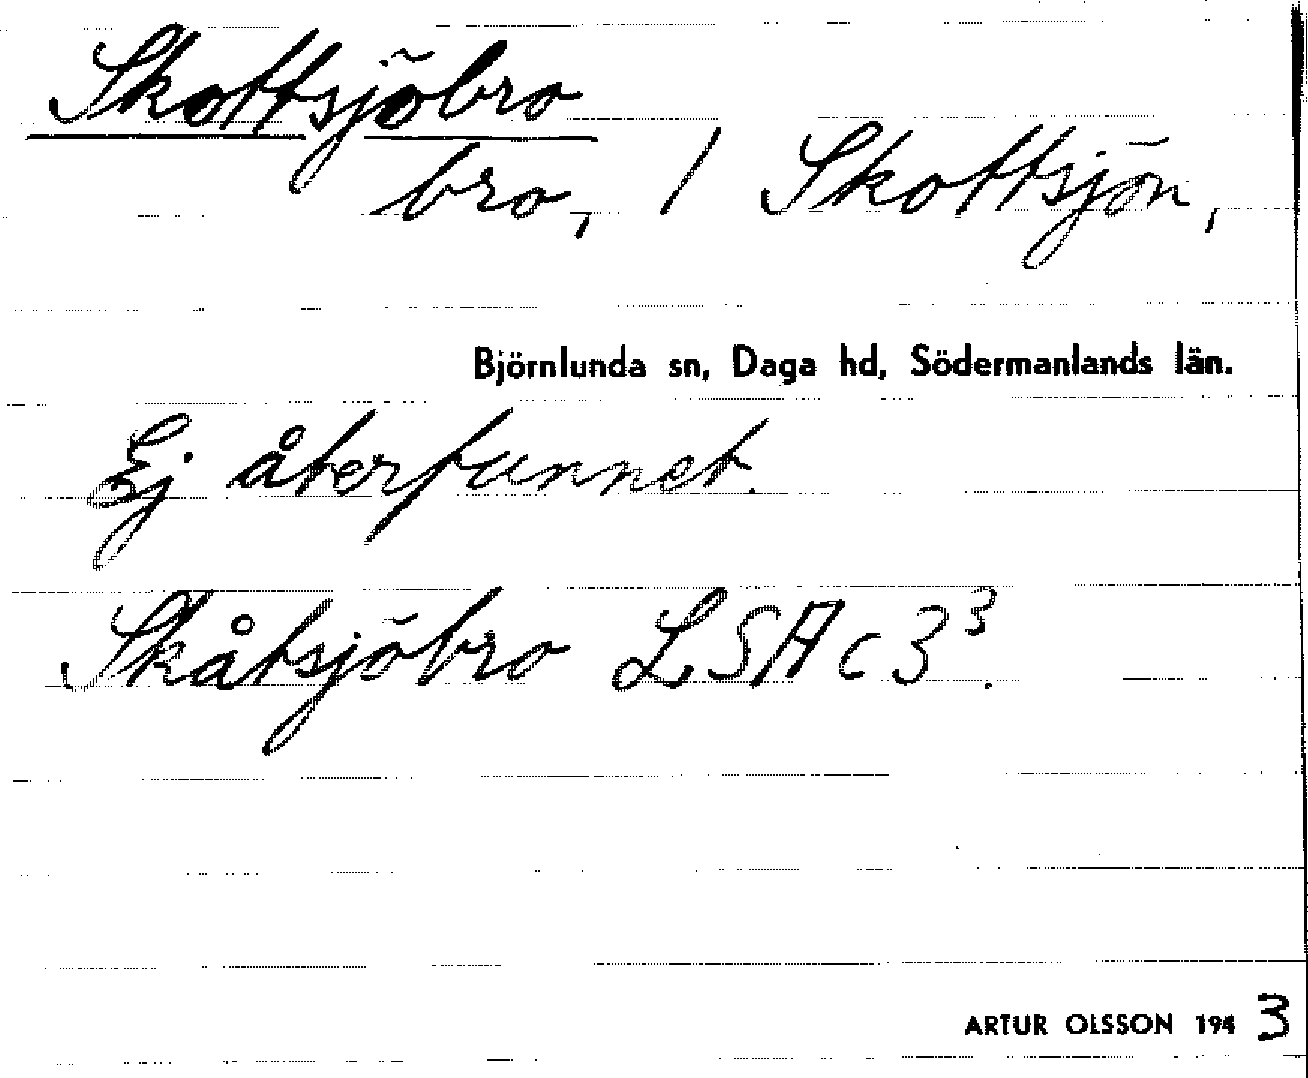 Skottsjöbro
bro, / Skottsjön,
Björnlunda sn, Daga hd, Södermanlands län.
Ej återfunnet.
Skåtsjöbro LSA c 3³.
ARTUR OLSSON 1943